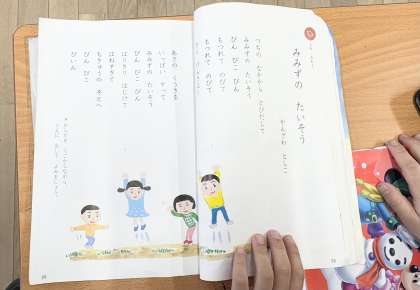 みみずの たいそう
かんざわ としこ
つちの なかから とびだして
みみずの たいそう
ぴん ぴこ ぴん
もつれて のびて
もつれて のびて
あさの くうきを
いっぱい すって
みみずの たいそう
ぴん ぴこ ぴん
はりきり はじけて
はねすぎて
ちきゅうの そとへ
ぴん ぴこ
ぴいん